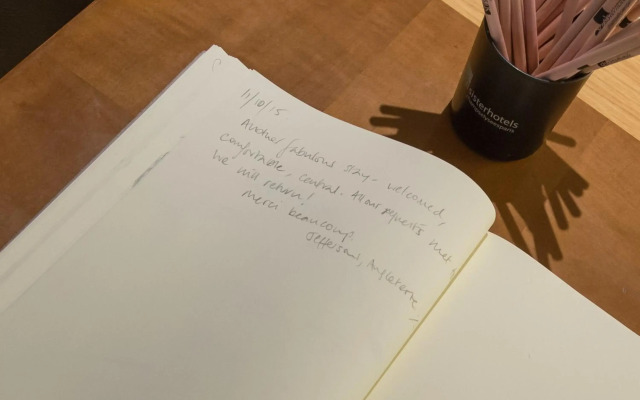 11/10/15
Another fabulous stay - welcomed,
comfortable, central. All our requests met
We will return!
Merci beaucoup!
Angleterre
sisterhotels